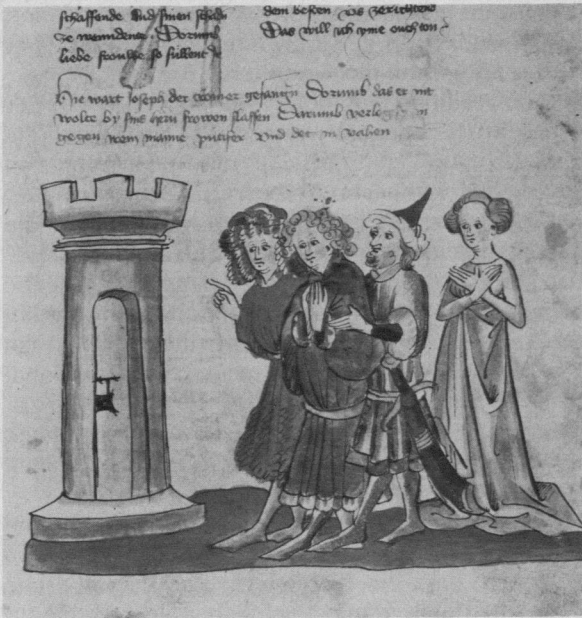 schaffende Und sinen schaden
ze wenndenne Dorumb
liebe frouwe so sullent Ir
dem besten vs zerichtene
Das will ich yme ouch ton
Hie wart Joseph der tromer gefangen Dorumb das er nit
wolte by sins herrn frowen slaffen Darumb verlog sy in
gegen irem manne putifer vnd det in vahen